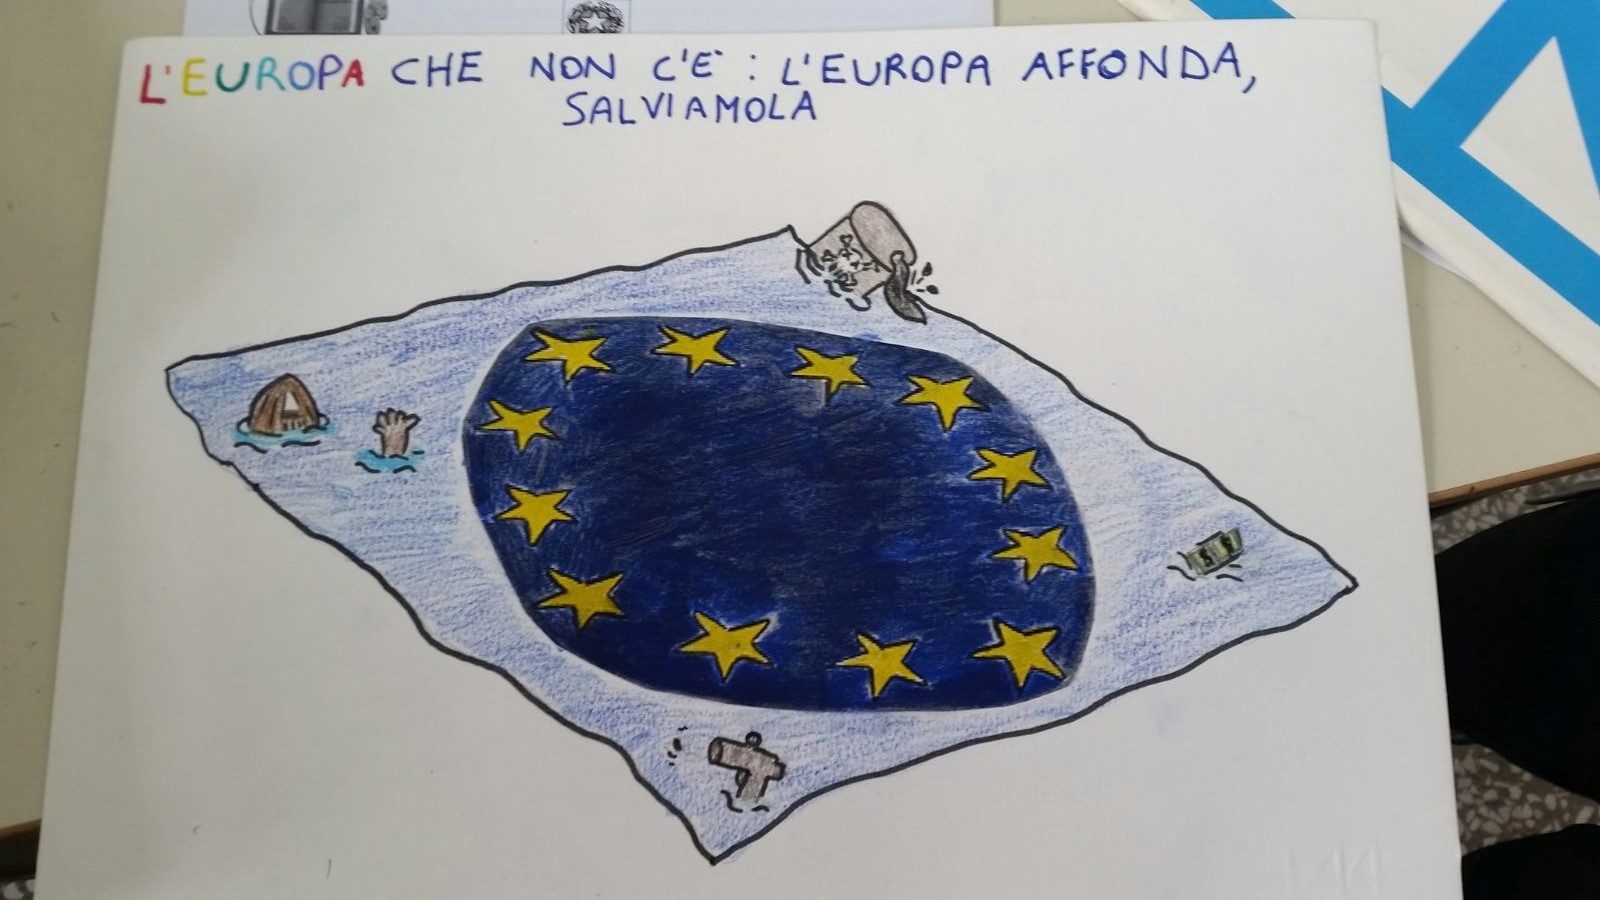 L'EUROPA CHE NON C'E' : L'EUROPA AFFONDA,
SALVIAMOLA